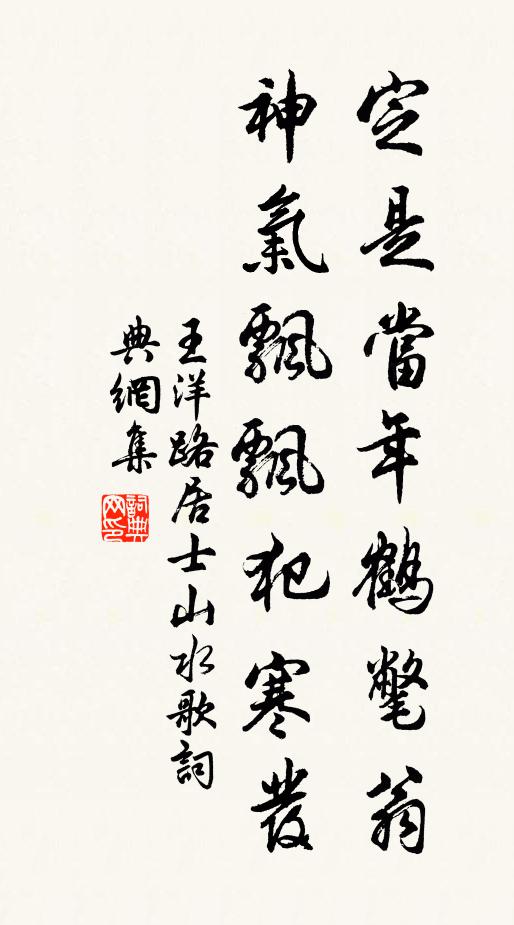 定是當年鶴氅翁
神氣飄飄犯寒發
王洋路居士山水歌詞
典網集
詞典網印